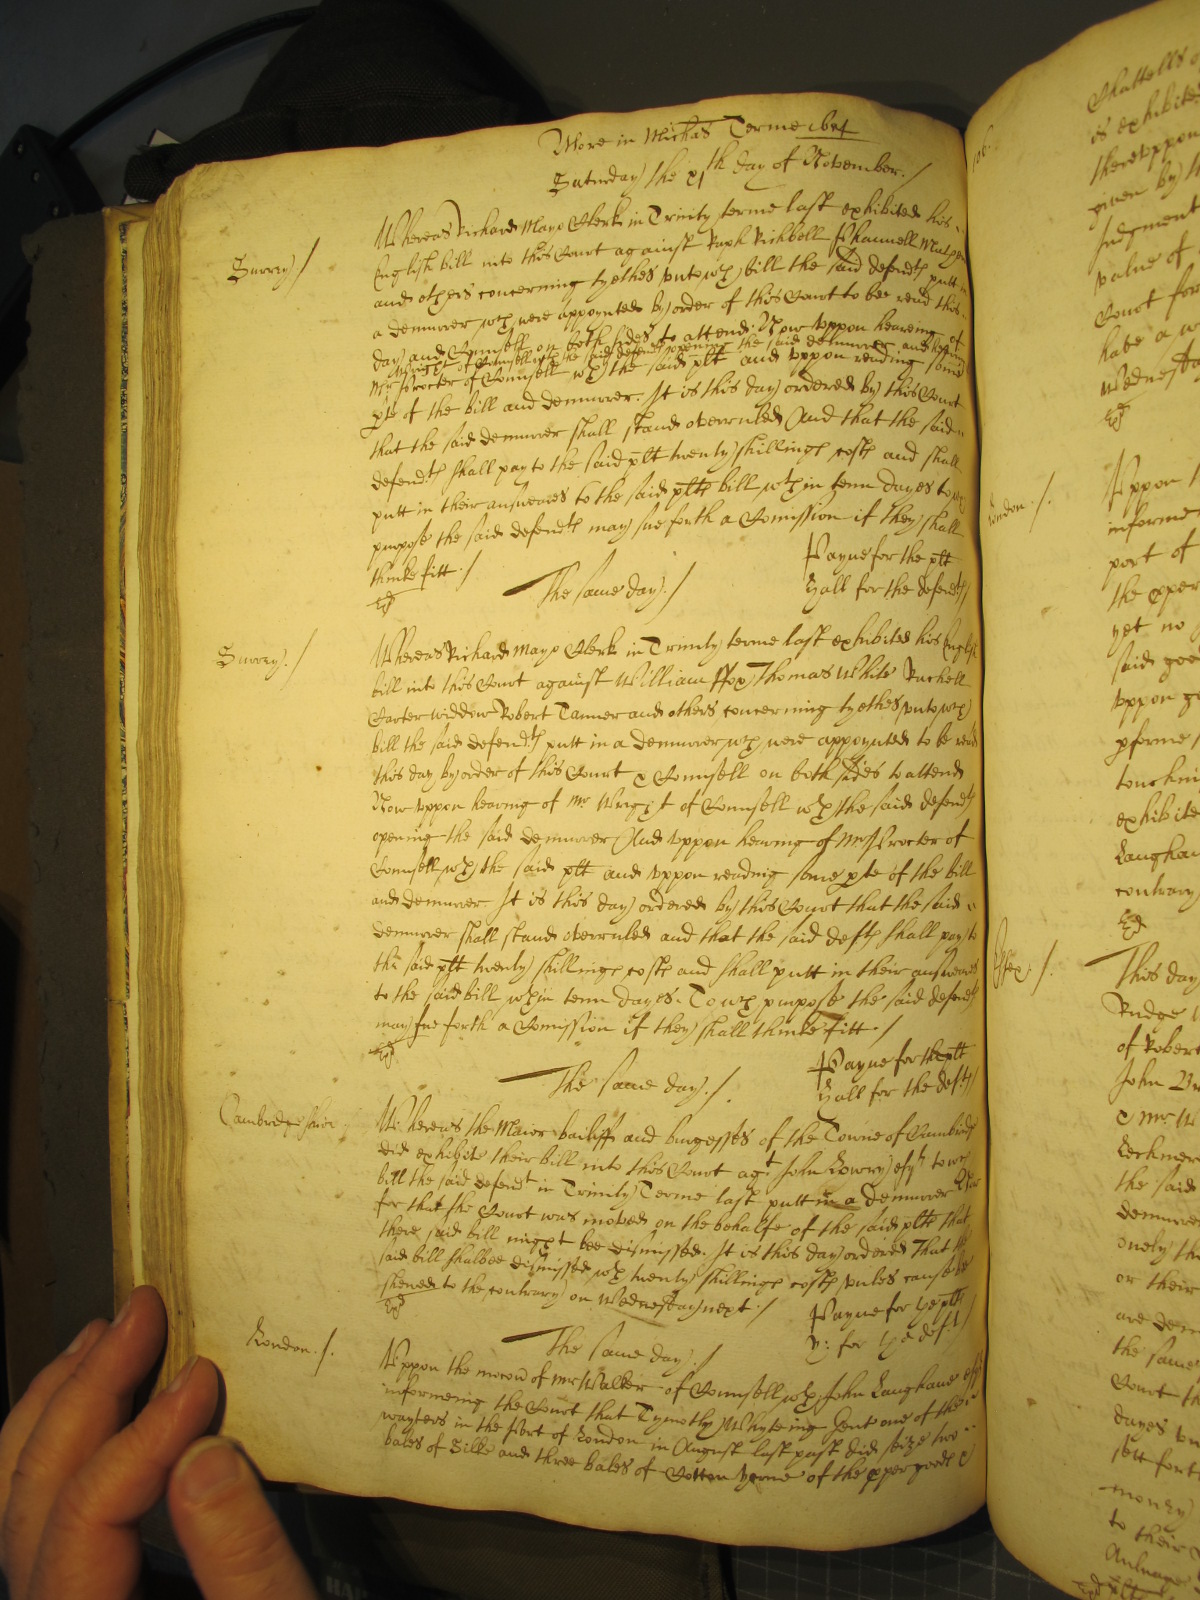 More in Michãs Terme 1654
Saturday the xjth day of November./
Surrey./
Whereas Richard Mayo Clerke in Trinity terme last exhibited his
English bill into this Court against Raph Richbell
and others concerning tythes unto wch bill the said defendts putt in
a demurrer wch were appoynted by order of this Court to bee read this
day and Counsell on both sides to attend. Now uppon heareing of
Mr Wright of Counsell wth the said defendts opening the said demurrer and hearing
Mr Procter of Counsell wth the said plt and uppon reading some
pte of the bill and demurrer. It is this day ordered by this Court
that the said demurrer shall stand overruled And that the said
defendts shall pay to the said plt twenty shillings costs and shall
putt in their answeares to the said plts bill wthin tenn dayes to wch
purpose the said defendts may sue forth a Comission if they shall
thinke fitt./
Payne for the plt
Hall for the defendts/
The same day./
Surrey./
Whereas Richard Mayo Clerk in Trinity terme last exhibited his English
bill into this Court against William ffox Thomas White Rachell
Carter widdow Robert Tanner and others concerning tythes unto wch
bill the said defendts putt in a demurrer wch were appoynted to be read
this day by order of this Court & Counsell on both sides to attend
Now uppon hearing of Mr Wright of Counsell wth the said defendts
opening the said demurrer And uppon hearing of Mr Procter of
Counsell wth the said plt and uppon reading some pte of the bill
and demurrer It is this day ordered by this Court that the said
demurrer shall stand overruled and that the said defts shall pay to
the said plt twenty shillings costs and shall putt in their answeares
to the said bill wthin tenn dayes. To wch purpose the said defendts
may sue forth a Comission if they shall thinke fitt./
Payne for the plt
Hall for the defts/
The same day./.
Cambridgeshire
Whereas the Maior bailiffs and burgesses of the Towne of Cambridge
did exhibite their bill into this Court agt John Lowry esqr to wch
bill the said defendt in Trinity Terme last putt in a demurrer
for that the Court was moved on the behalfe of the said plts that
there said bill might bee dismissed. It is this day ordered That the
said bill shalbee dismissed wth twenty shillings costs unles cause be
shewed to the contrary on Wednesday next./
Payne for the plts
H: for the deft/
The same day./
London./.
Uppon the mocon of Mr Walker of Counsell wth John Langhame esqr
informeing the Court that Tymothy Whyteing Gent one of the
wayters in the Port of London in August last past did seize two
bales of Silke and three bales of Cotten yerne of the pper goods &
Chattells
is exhibited
thereuppon
given by
Judgment
value of
Court for
have a
Wednesday
London./.
Uppon
informe
port of
the oper
yet no
said goo
uppon
pforme
touching
exhibite
Langham
contrary
Essex./.
This day
Rudge
of Robert
John
& Mr W
the said
demurrer
onely th
or their
are dem
the same
Court th
dayes
sett forth
money
to their